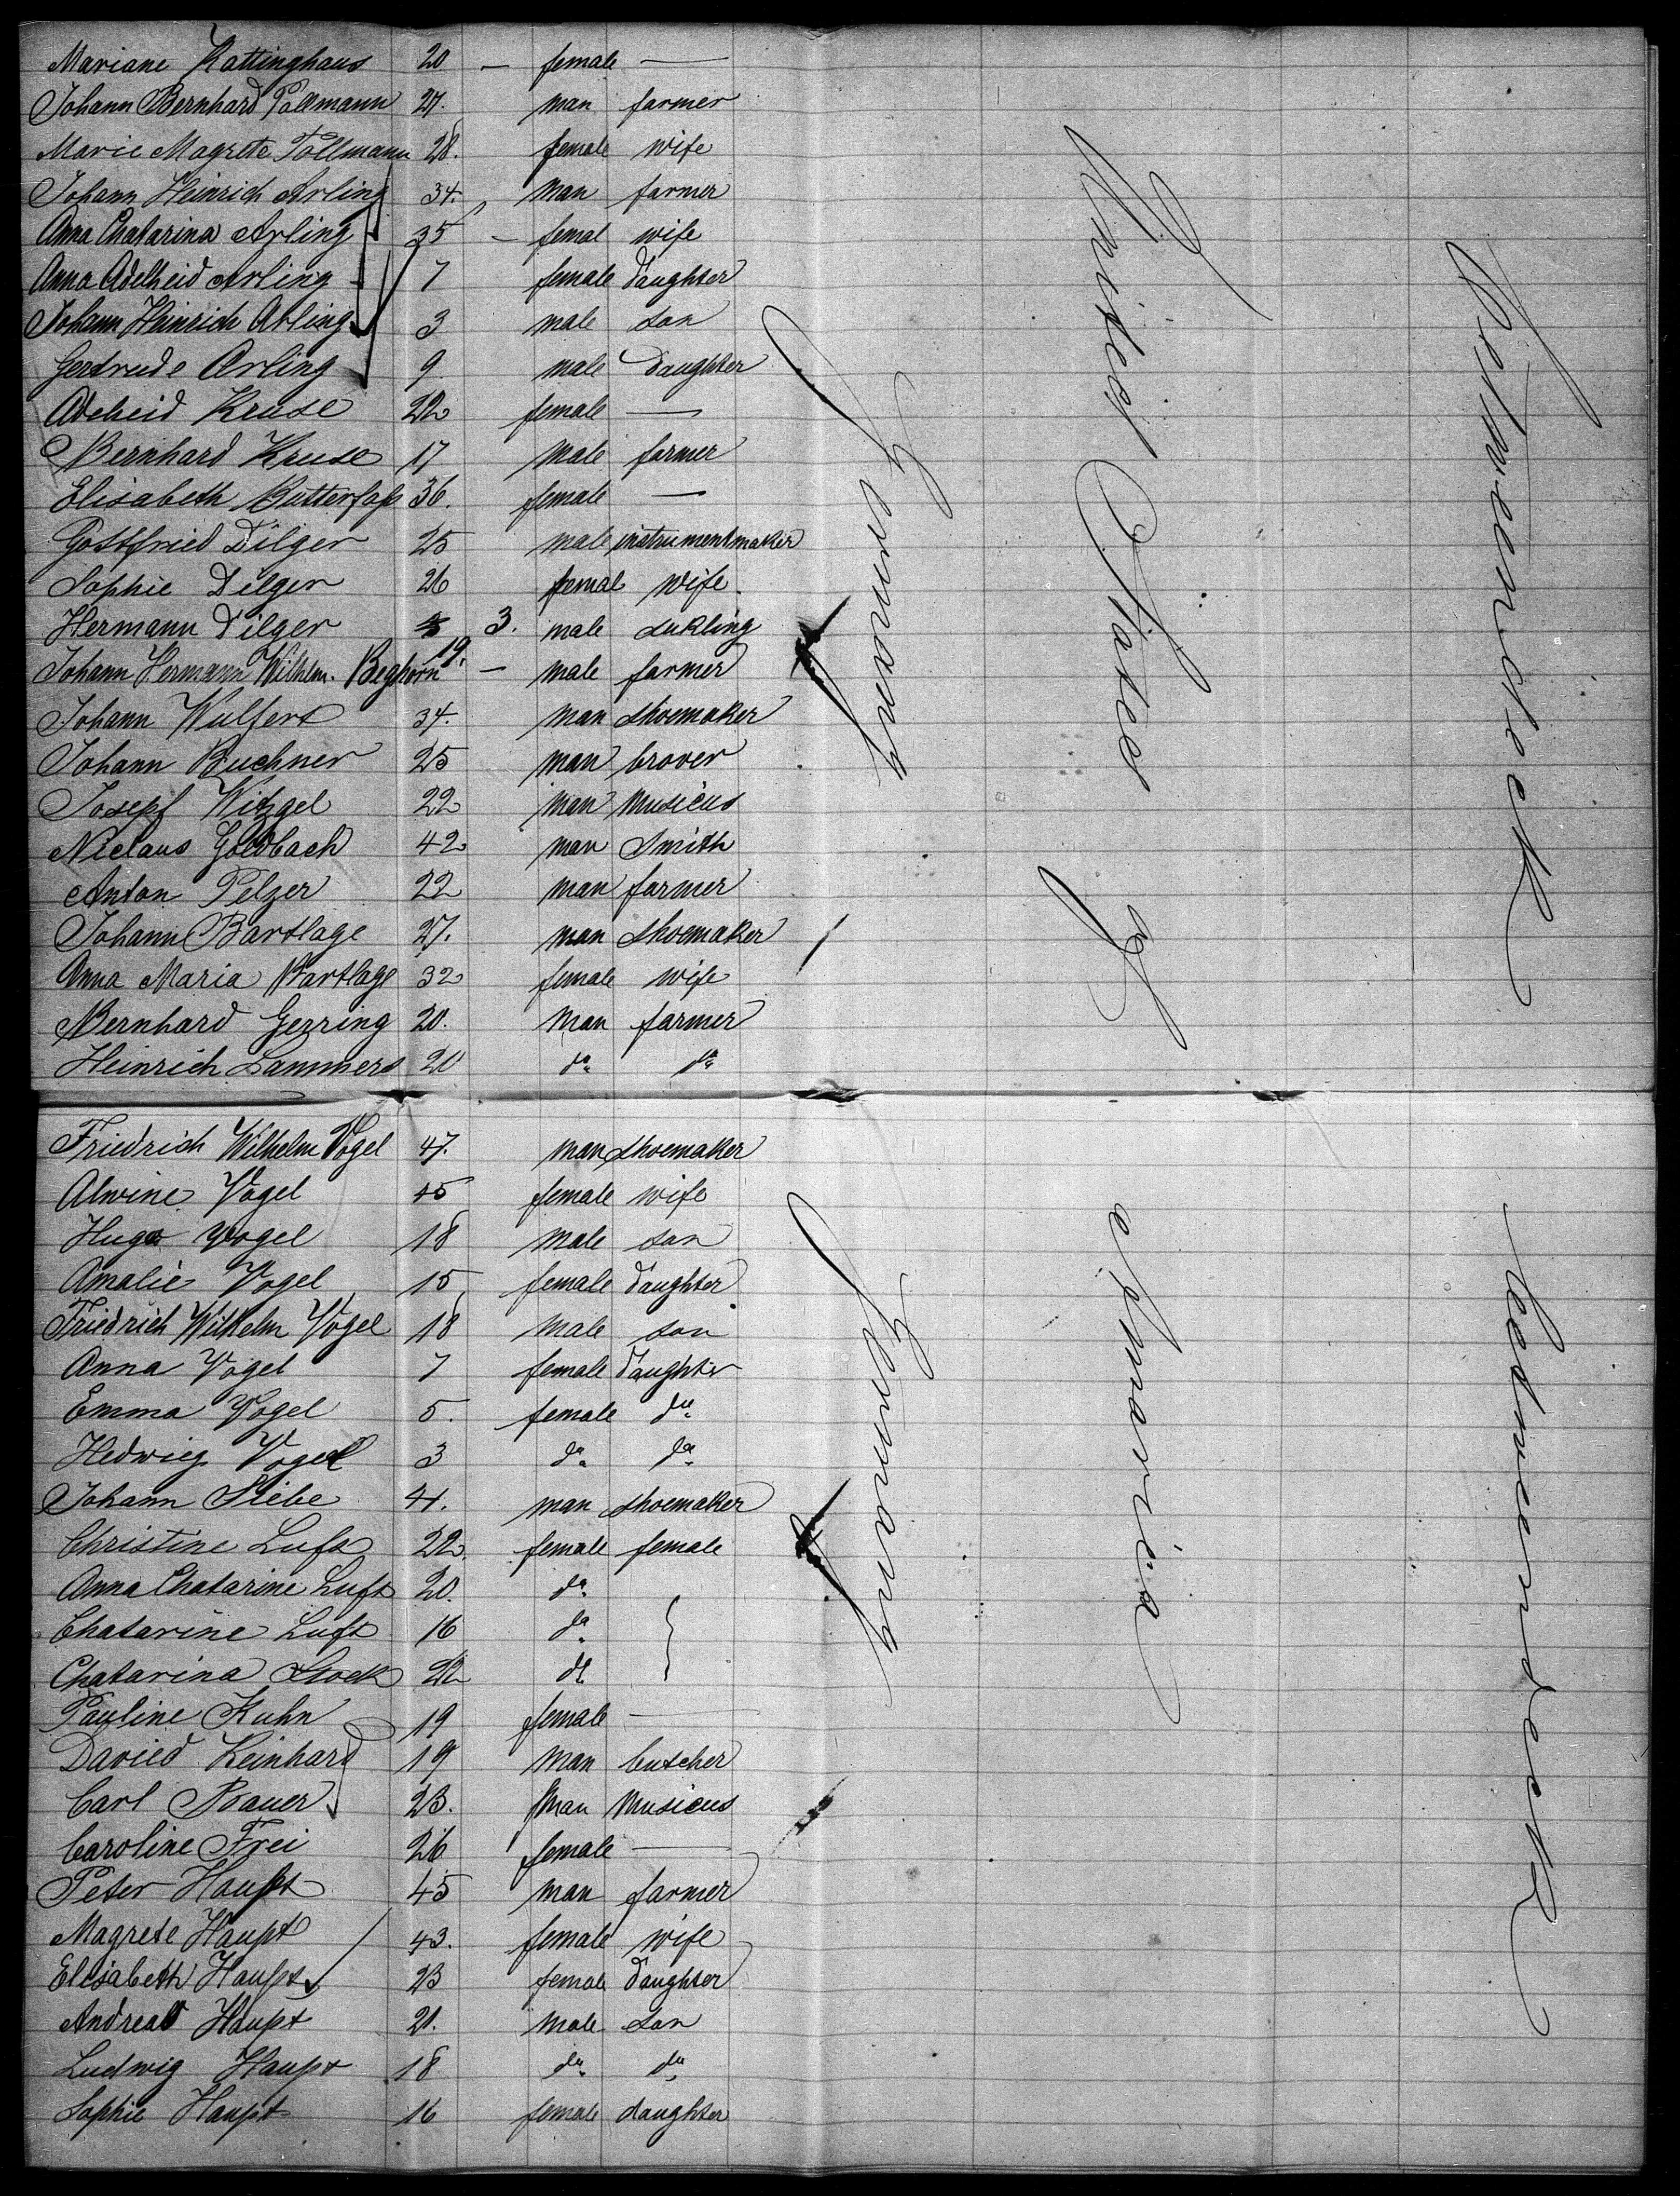 Mariane Kattinghaus 20 — female —
Johann Bernhard Pollmann 27. man farmer
Marie Magrete Pollmann 28. female wife
Johann Heinrich Arling 34. man farmer
Anna Chatarina Arling 35 — femal wife
Anna Adelheid Arling 7 female daughter
Johann Heinrich Arling 3 male son
Gertrude Arling 9 male daughter
Adelheid Kruse 22 female —
Bernhard Kruse 17 male farmer
Elisabeth Butterfaß 36. female —
Gottfried Dilger 25 male instrumentmaker
Sophie Dilger 26 femal wife.
Hermann Dilger 3. male sukling
Johann Hermann Wilhelm. Beghorn 19. — male farmer
Johann Wulfers 34. man shoemaker
Johann Buchner 25 man brover
Josepf Witzgel 22 man musicus
Niclaus Goldbach 42 man Smith
Anton Pelzer 22 man farmer
Johann Bartlage 27. man shoemaker
Anna Maria Bartlage 32 female wife
Bernhard Gerring 20. man farmer
Heinrich Lammers 20 do do
Germany
United States of
Zwischendeck
Friedrich Wilhelm Vogel 47. man shoemaker
Alwine Vogel 45 female wife
Hugo Vogel 18 male son
Amalie Vogel 15 female daughter
Friedrich Wilhelm Vogel 18 male son
Anna Vogel 7 female daughter
Emma Vogel 5. female do
Hedwig Vogel 3 do do
Johann Siebe 41. man shoemaker
Christine Luft 22. female female
Anna Chatarine Luft 20. do
Chatarine Luft 16 do
Chatarina Stock 22 do
Pauline Kuhn 19 female —
David Reinhard 19 man butcher
Carl Bauer 23. man musicus
Caroline Frei 26 female —
Peter Haupt 45 man farmer
Magrete Haupt 43. female wife
Elisabeth Haupt 23 female daughter
Andreas Haupt 21. male son
Ludwig Haupt 18 do do
Sophie Haupt 16 female daughter
Germany
America